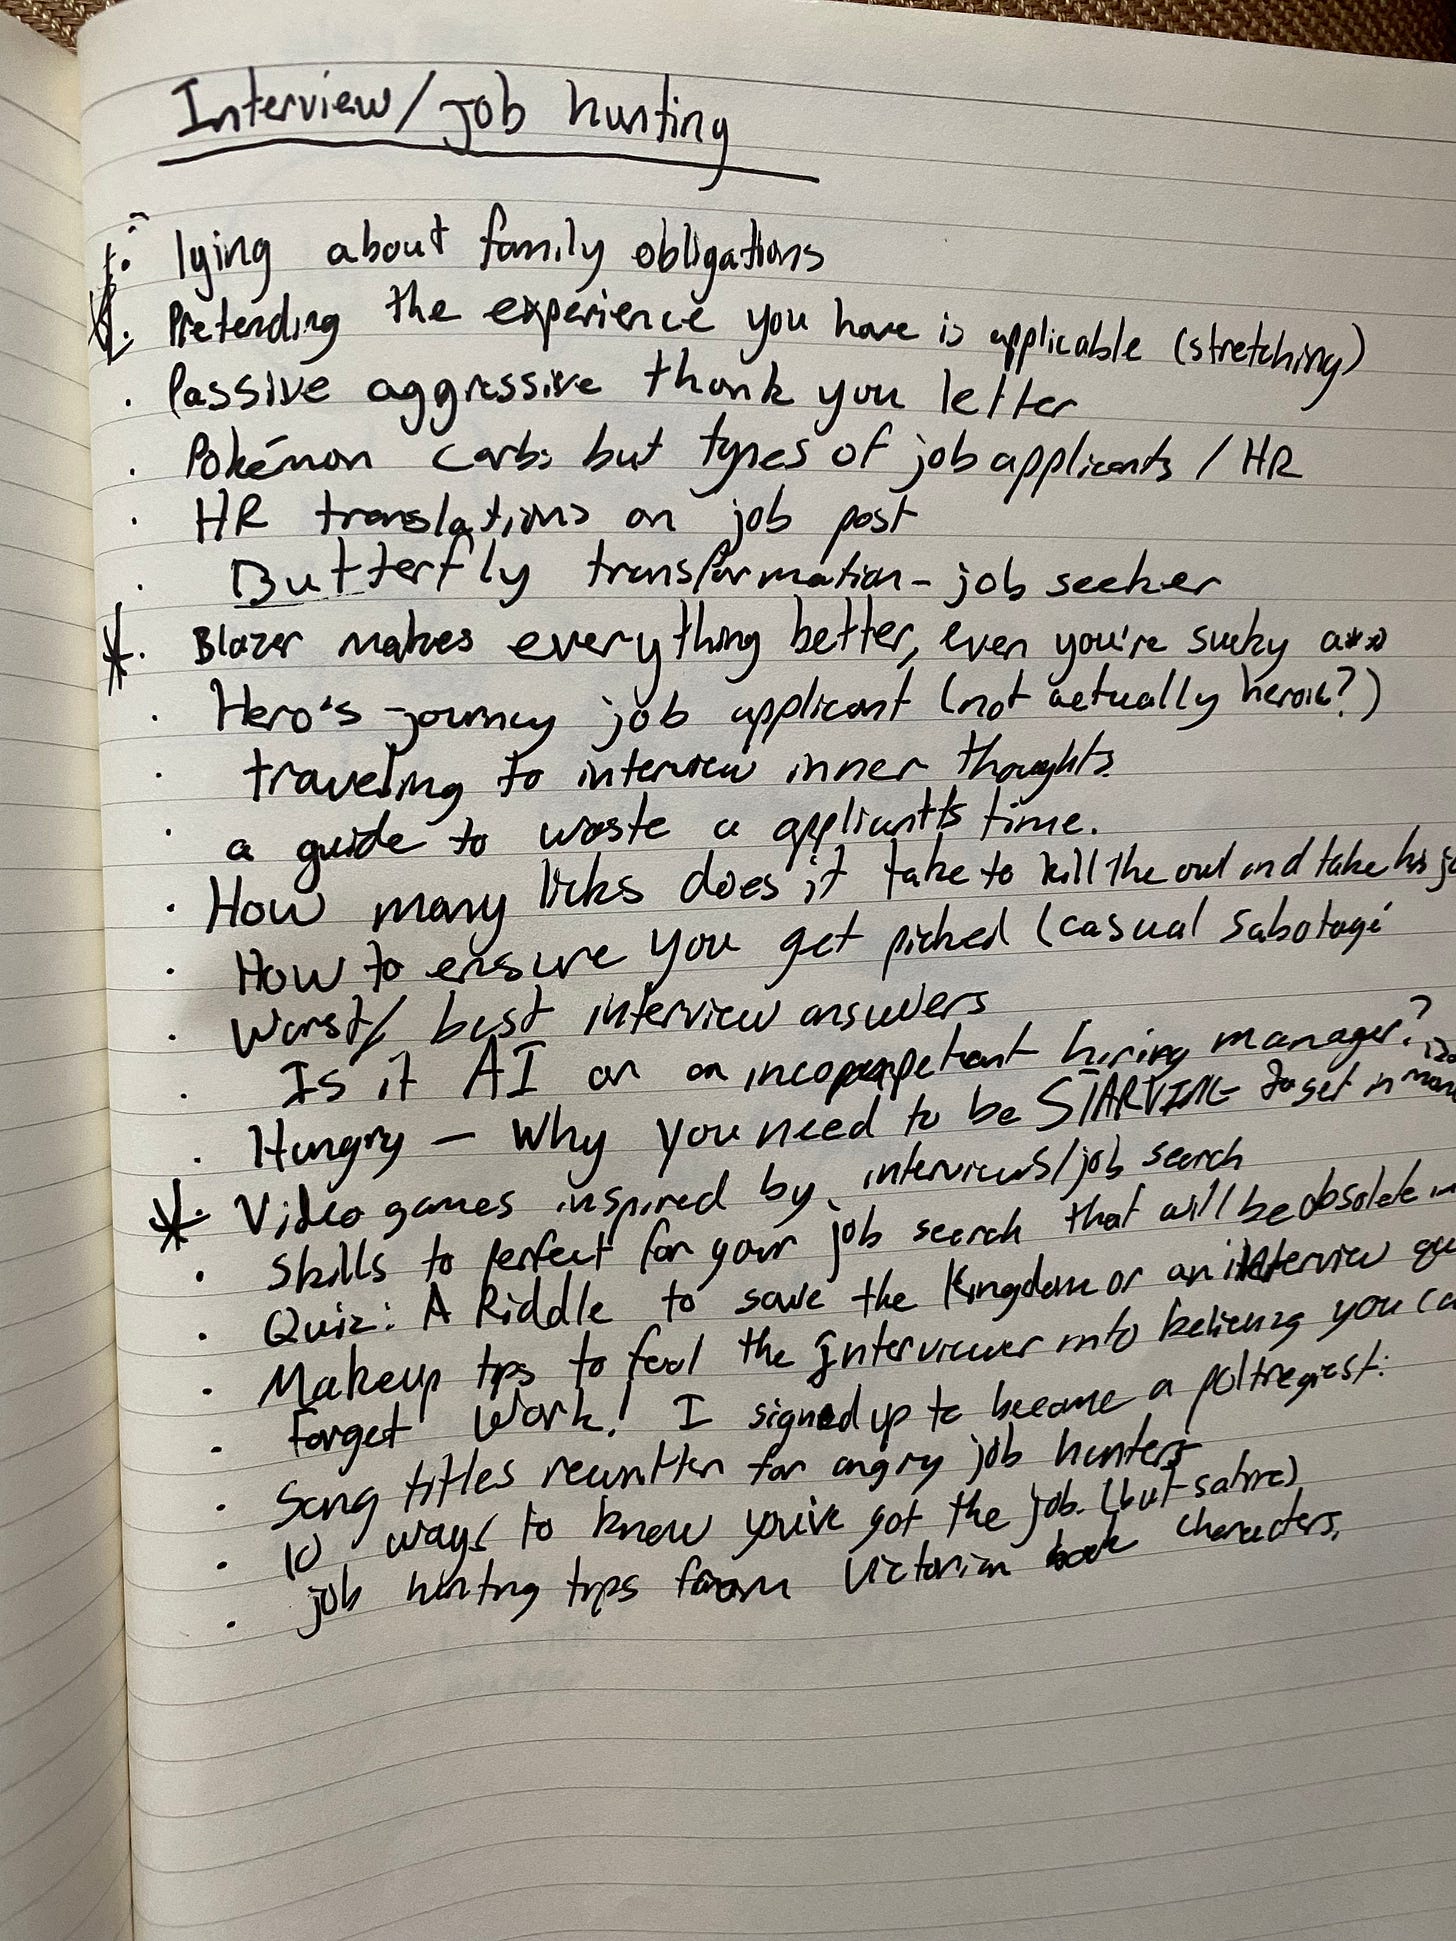 Interview/job hunting
lying about family obligations
Pretending the experience you have is applicable (stretching)
Passive aggressive thank you letter
Pokémon Carbs but types of job applicants / HR
HR translations on job post
Butterfly transformation - job seeker
Blazer makes everything better, even you're sucky a**
Hero's journey job applicant (not actually heroic?)
traveling to interview inner thoughts
a guide to waste a applicant's time.
How many licks does it take to kill the owl and take his
How to ensure you get picked (casual sabotage
Worst/ best interview answers
Is it AI or an incompetent hiring manager?
Hungry - Why you need to be STARVING to get
* Video games inspired by interviews/job search
Skills to perfect for your job search that will be obsolete in
Quiz: A Riddle to save the Kingdom or an interview
Makeup tips to fool the interviewer into believing you
Forget Work! I signed up to become a poltregiest.
Song titles rewritten for angry job hunters
10 ways to know you've got the job. (but satire)
job hunting tips from Victorian book characters.